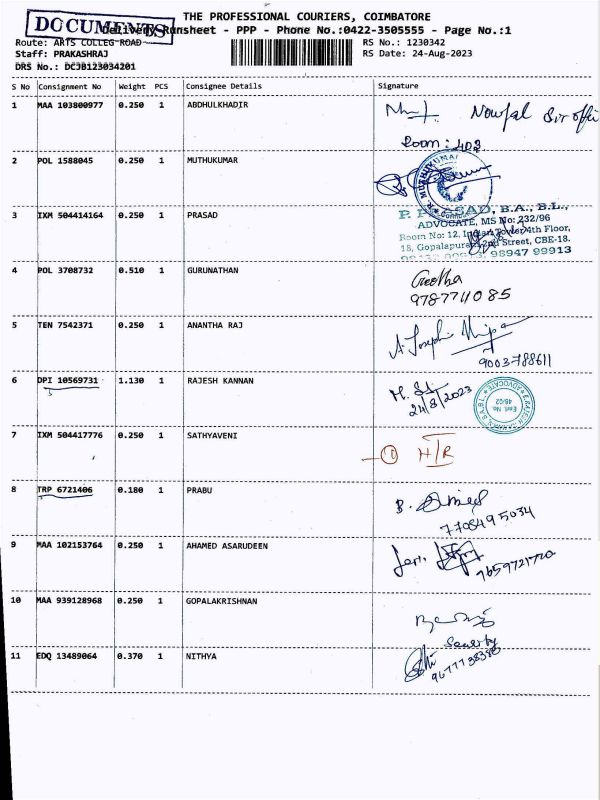 THE PROFESSIONAL COURIERS, COIMBATORE
DOCUMENTS
Delivery Runsheet - PPP - Phone No.:0422-3505555 - Page No.:1
Route: ARTS COLLEG ROAD
RS No.: 1230342
Staff: PRAKASHRAJ
RS Date: 24-Aug-2023
DRS No.: DCJB123034201
S No Consignment No Weight PCS Consignee Details Signature
1 MAA 103800977 0.250 1 ABDHULKHADIR
Nowfal Sir offi
Room: 403
2 POL 1588045 0.250 1 MUTHUKUMAR
3 IXM 504414164 0.250 1 PRASAD
P. PRASAD, B.A., B.L.,
ADVOCATE, MS No: 232/96
Room No: 12, Indian Tower 4th Floor,
18, Gopalapuram 2nd Street, CBE-18.
98947 99913
4 POL 3708732 0.510 1 GURUNATHAN
Geetha
9787711085
5 TEN 7542371 0.250 1 ANANTHA RAJ
A. Joseph
9003788611
6 DPI 10569731 1.130 1 RAJESH KANNAN
24/8/2023
ADVOCATE
7 IXM 504417776 0.250 1 SATHYAVENI
1 H/R
8 TRP 6721406 0.180 1 PRABU
7708495034
9 MAA 102153764 0.250 1 AHAMED ASARUDEEN
7659721720
10 MAA 939128968 0.250 1 GOPALAKRISHNAN
Security
11 EDQ 13489064 0.370 1 NITHYA